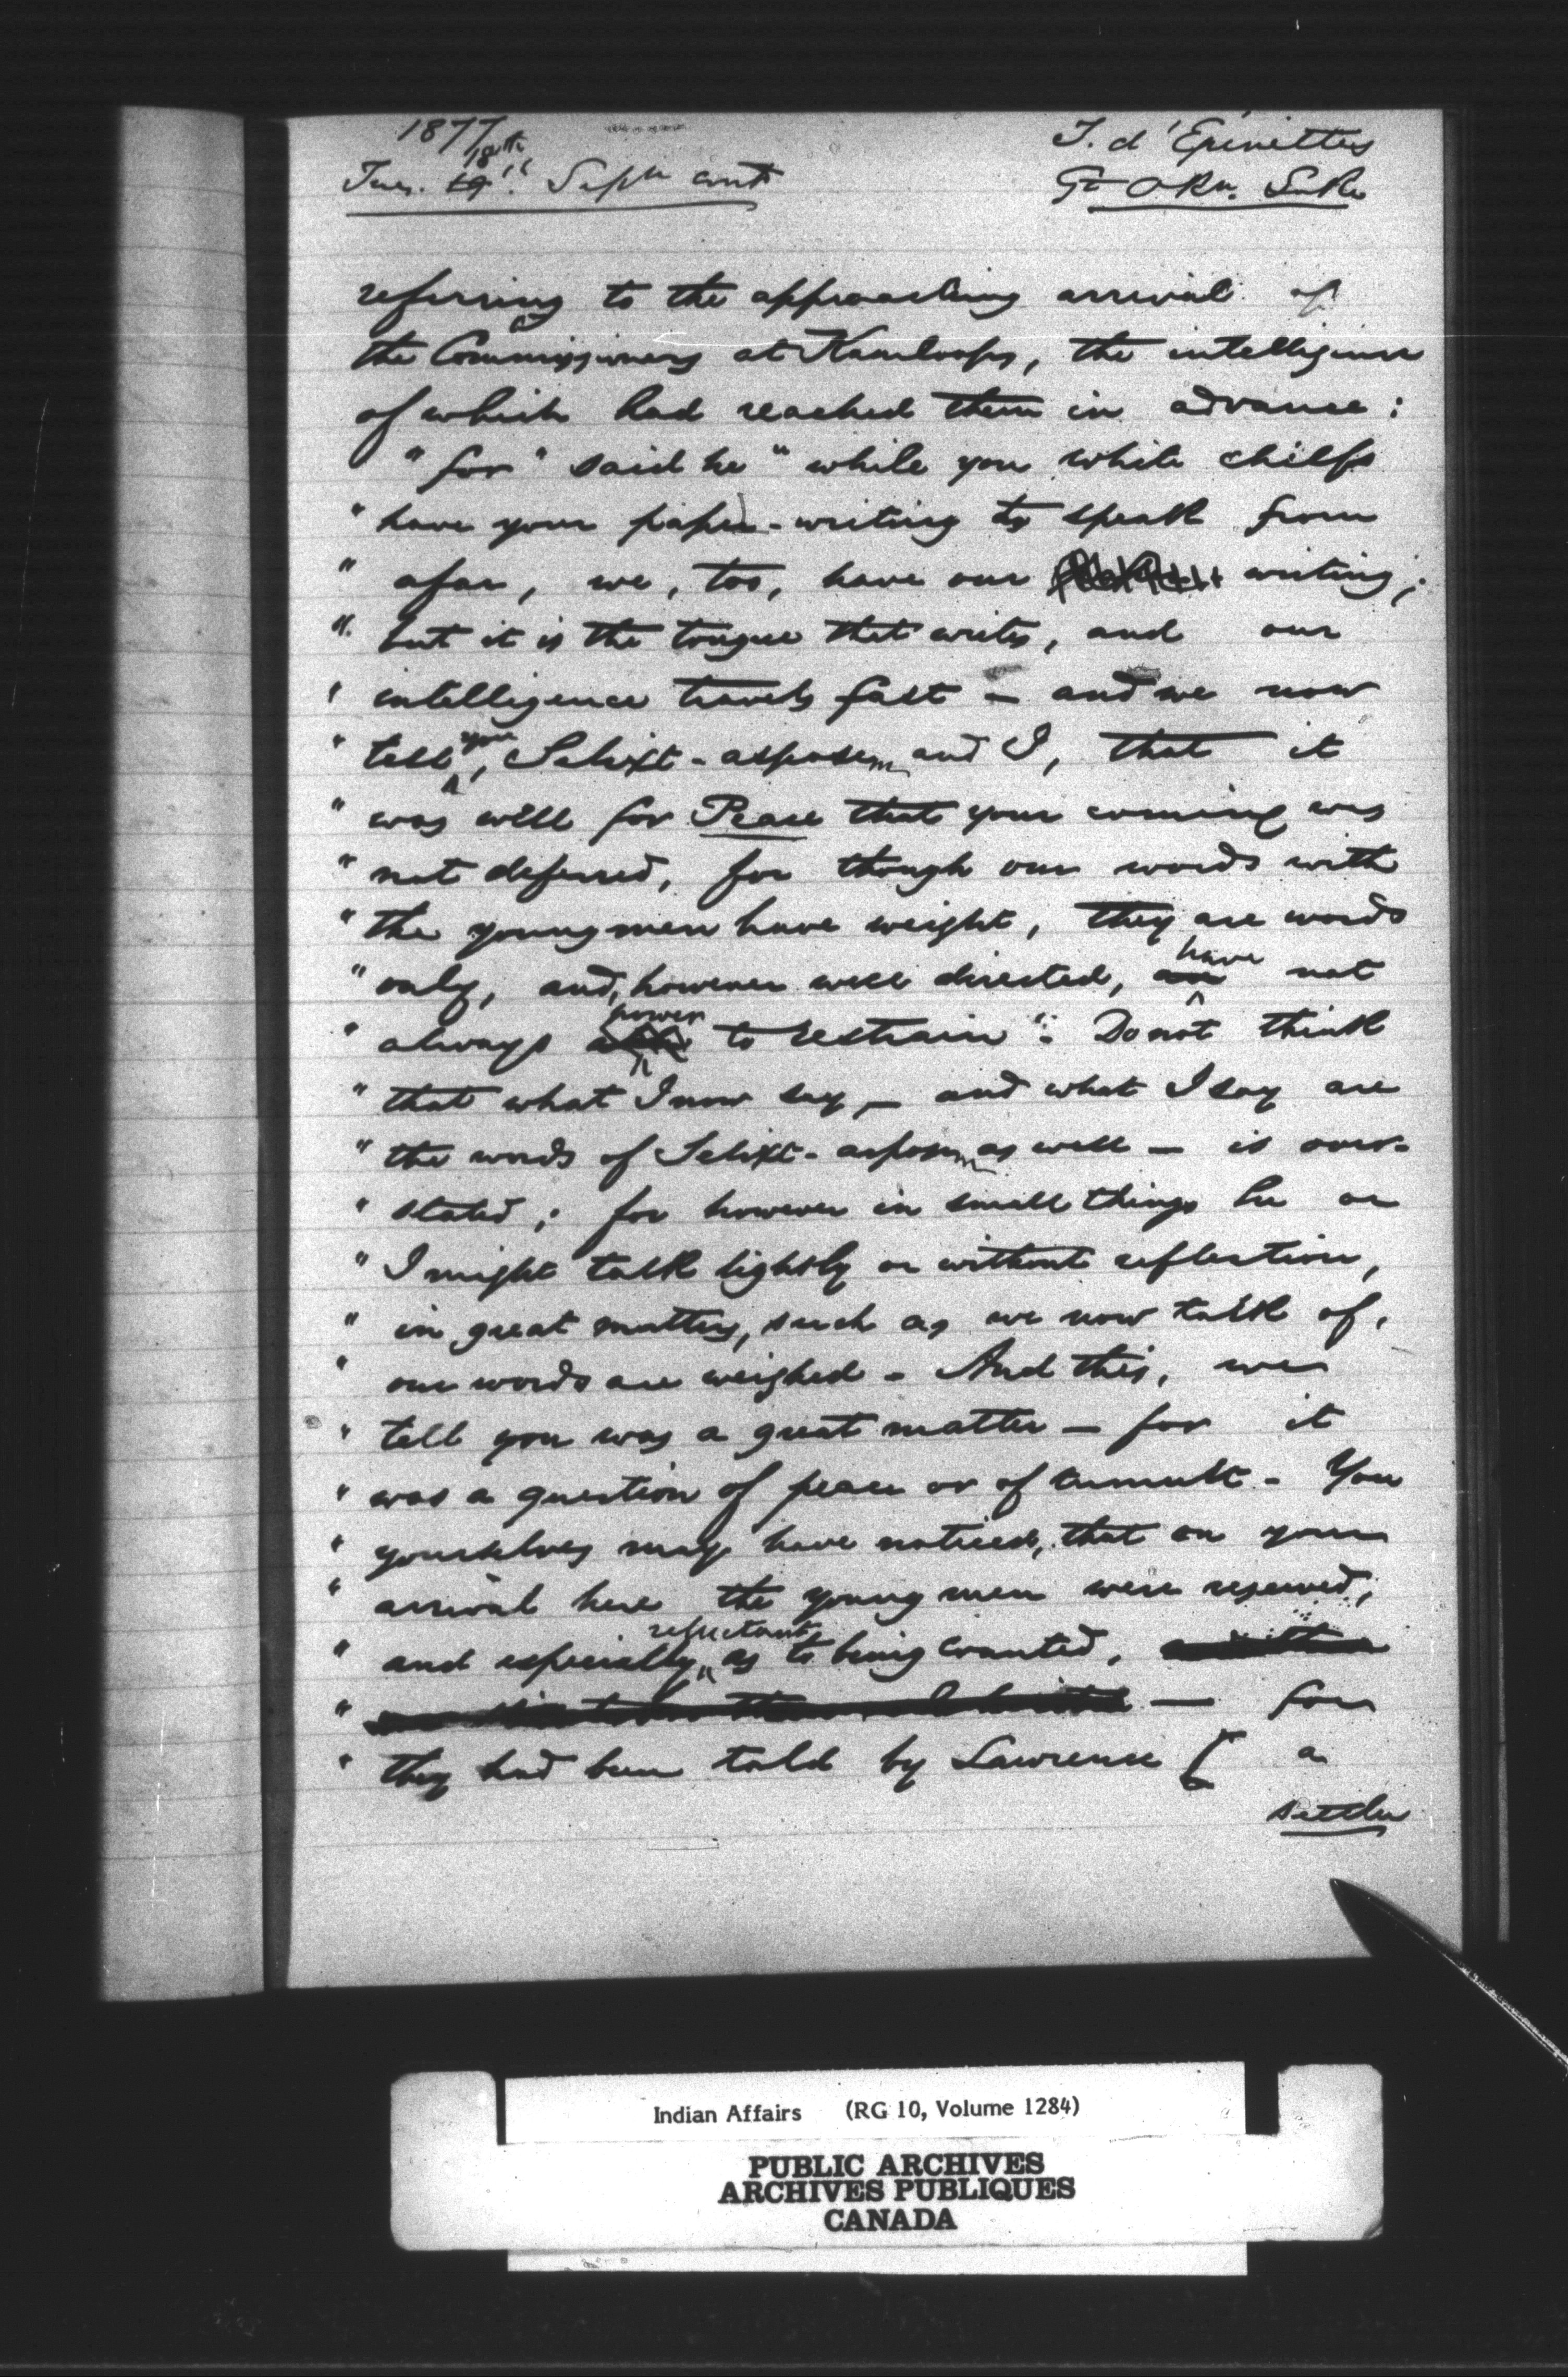 1877
Tues. 18th Septr cont
T. d'Epinettes
Gt Okn. Lake
referring to the approaching arrival of
the Commissioners at Kamloops, the intelligence
of which had reached them in advance:
"for" said he "while you white chiefs
" have your paper-writing to speak from
" afar, we, too, have our writing;
" but it is the tongue that writes, and our
" intelligence travels fast — and we now
" tell you, Selixt-asposem and I, that it
" was well for Peace that your coming was
" not deferred, for though our words with
" the young men have weight, they are words
" only, and, however well directed, have not
" always power to restrain". Do not think
" that what I now say, — and what I say are
" the words of Selixt-asposem as well — is over-
" stated; for however in small things he or
" I might talk lightly or without reflection,
" in great matters, such as we now talk of,
" our words are weighed - And this, we
" tell you was a great matter — for it
" was a question of peace or of tumult - You
" yourselves may have noticed, that on your
" arrival here the young men were reserved,
" and especially reluctant as to being counted,
" — for
" they had been told by Lawrence [ a
settler
Indian Affairs (RG 10, Volume 1284)
PUBLIC ARCHIVES
ARCHIVES PUBLIQUES
CANADA